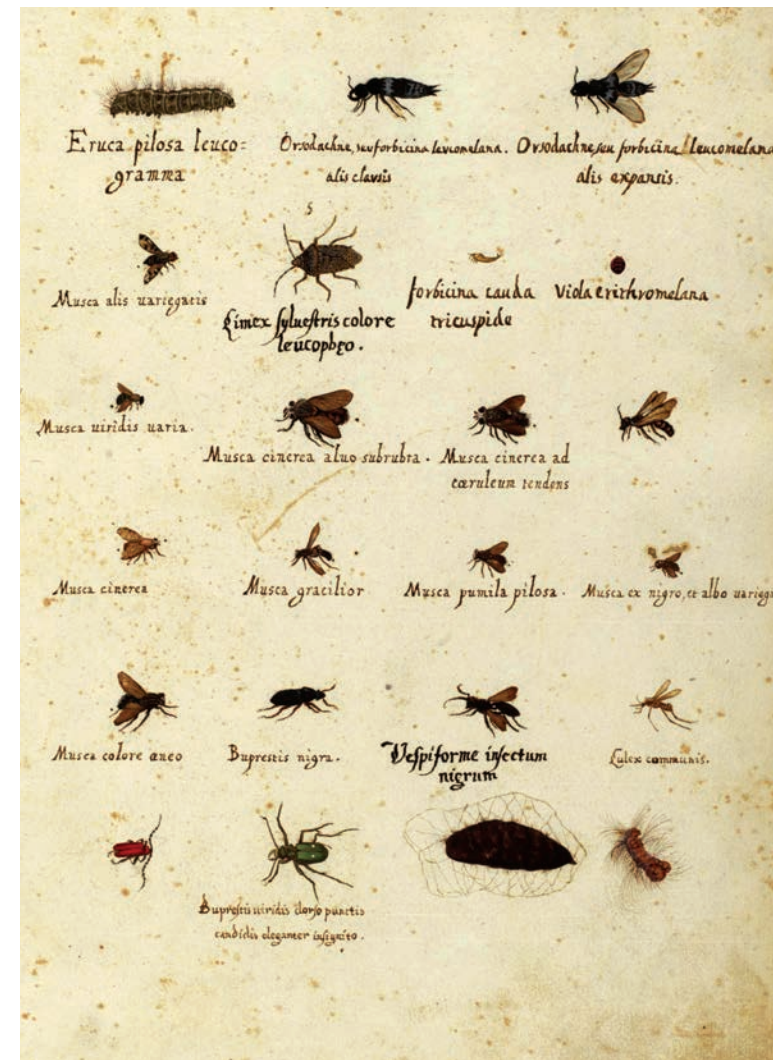 Eruca pilosa leuco=
gramma
Orsodachne, seu forbicina leucomelana.
alis clausis
Orsodachne, seu forbicina leucomelana
alis expansis.
5
Musca alis uariegatis
Cimex syluestris colore
leucophęo.
forbicina cauda
tricuspide
Viola erithromelana
Musca uiridis uaria.
Musca cinerea aluo subrubra.
Musca cinerea ad
cœruleum tendens
Musca cinerea
Musca gracilior
Musca pumila pilosa.
Musca ex nigro, et albo uarieg
Musca colore æneo
Buprestis nigra.
Vespiforme insectum
nigrum
Culex communis.
Buprestis uiridis dorso punctis
candidis eleganter insignito.